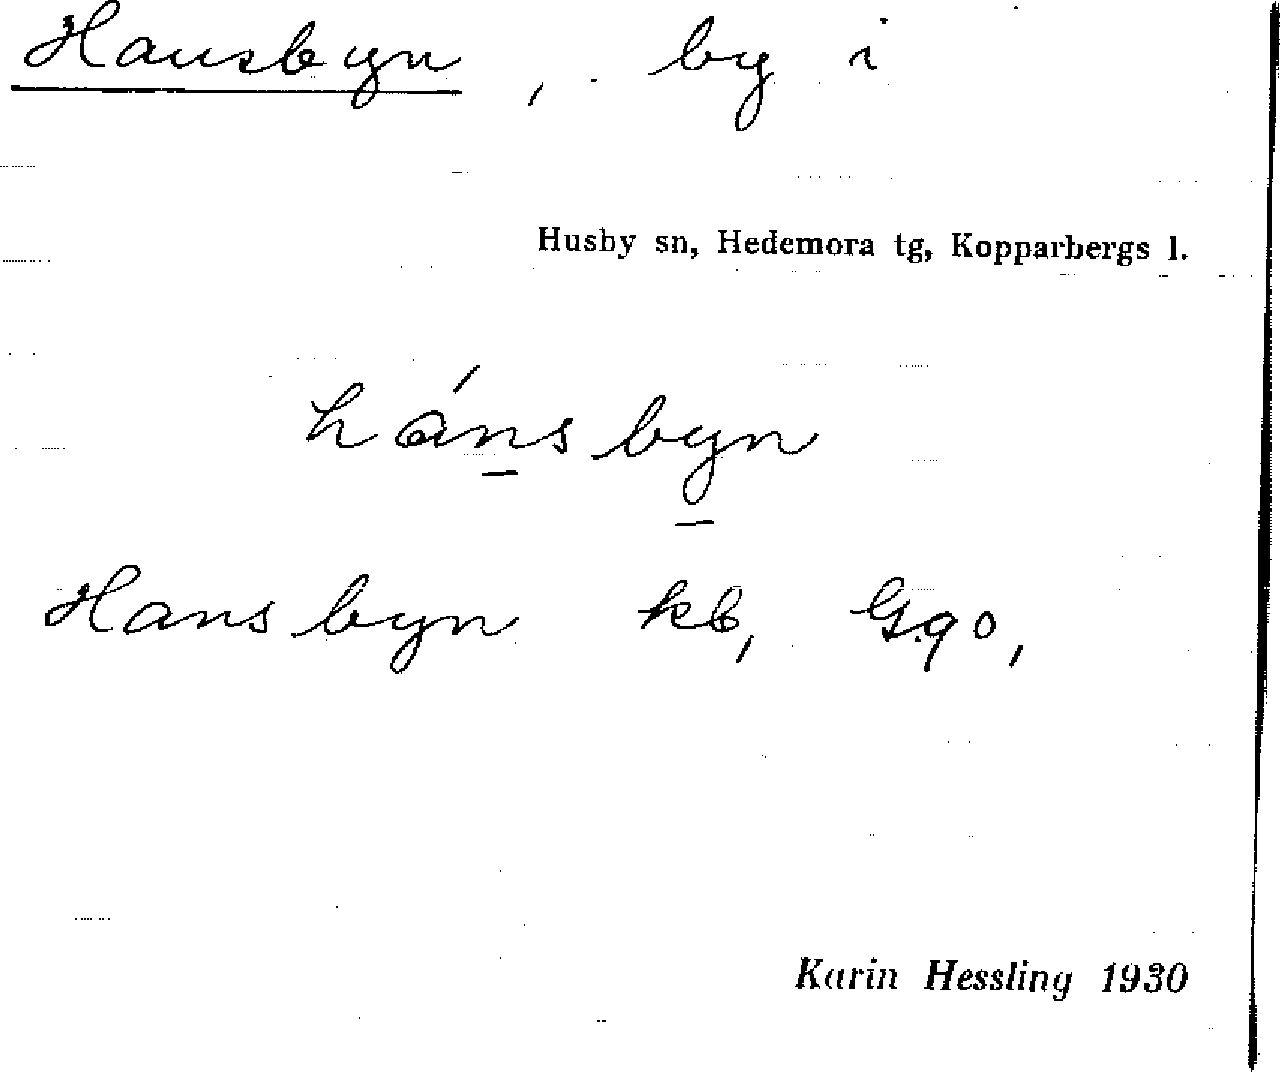 Hansbyn, by i
Husby sn, Hedemora tg, Kopparbergs l.
hánsbyn
Hansbyn kb, Ggo,
Karin Hessling 1930